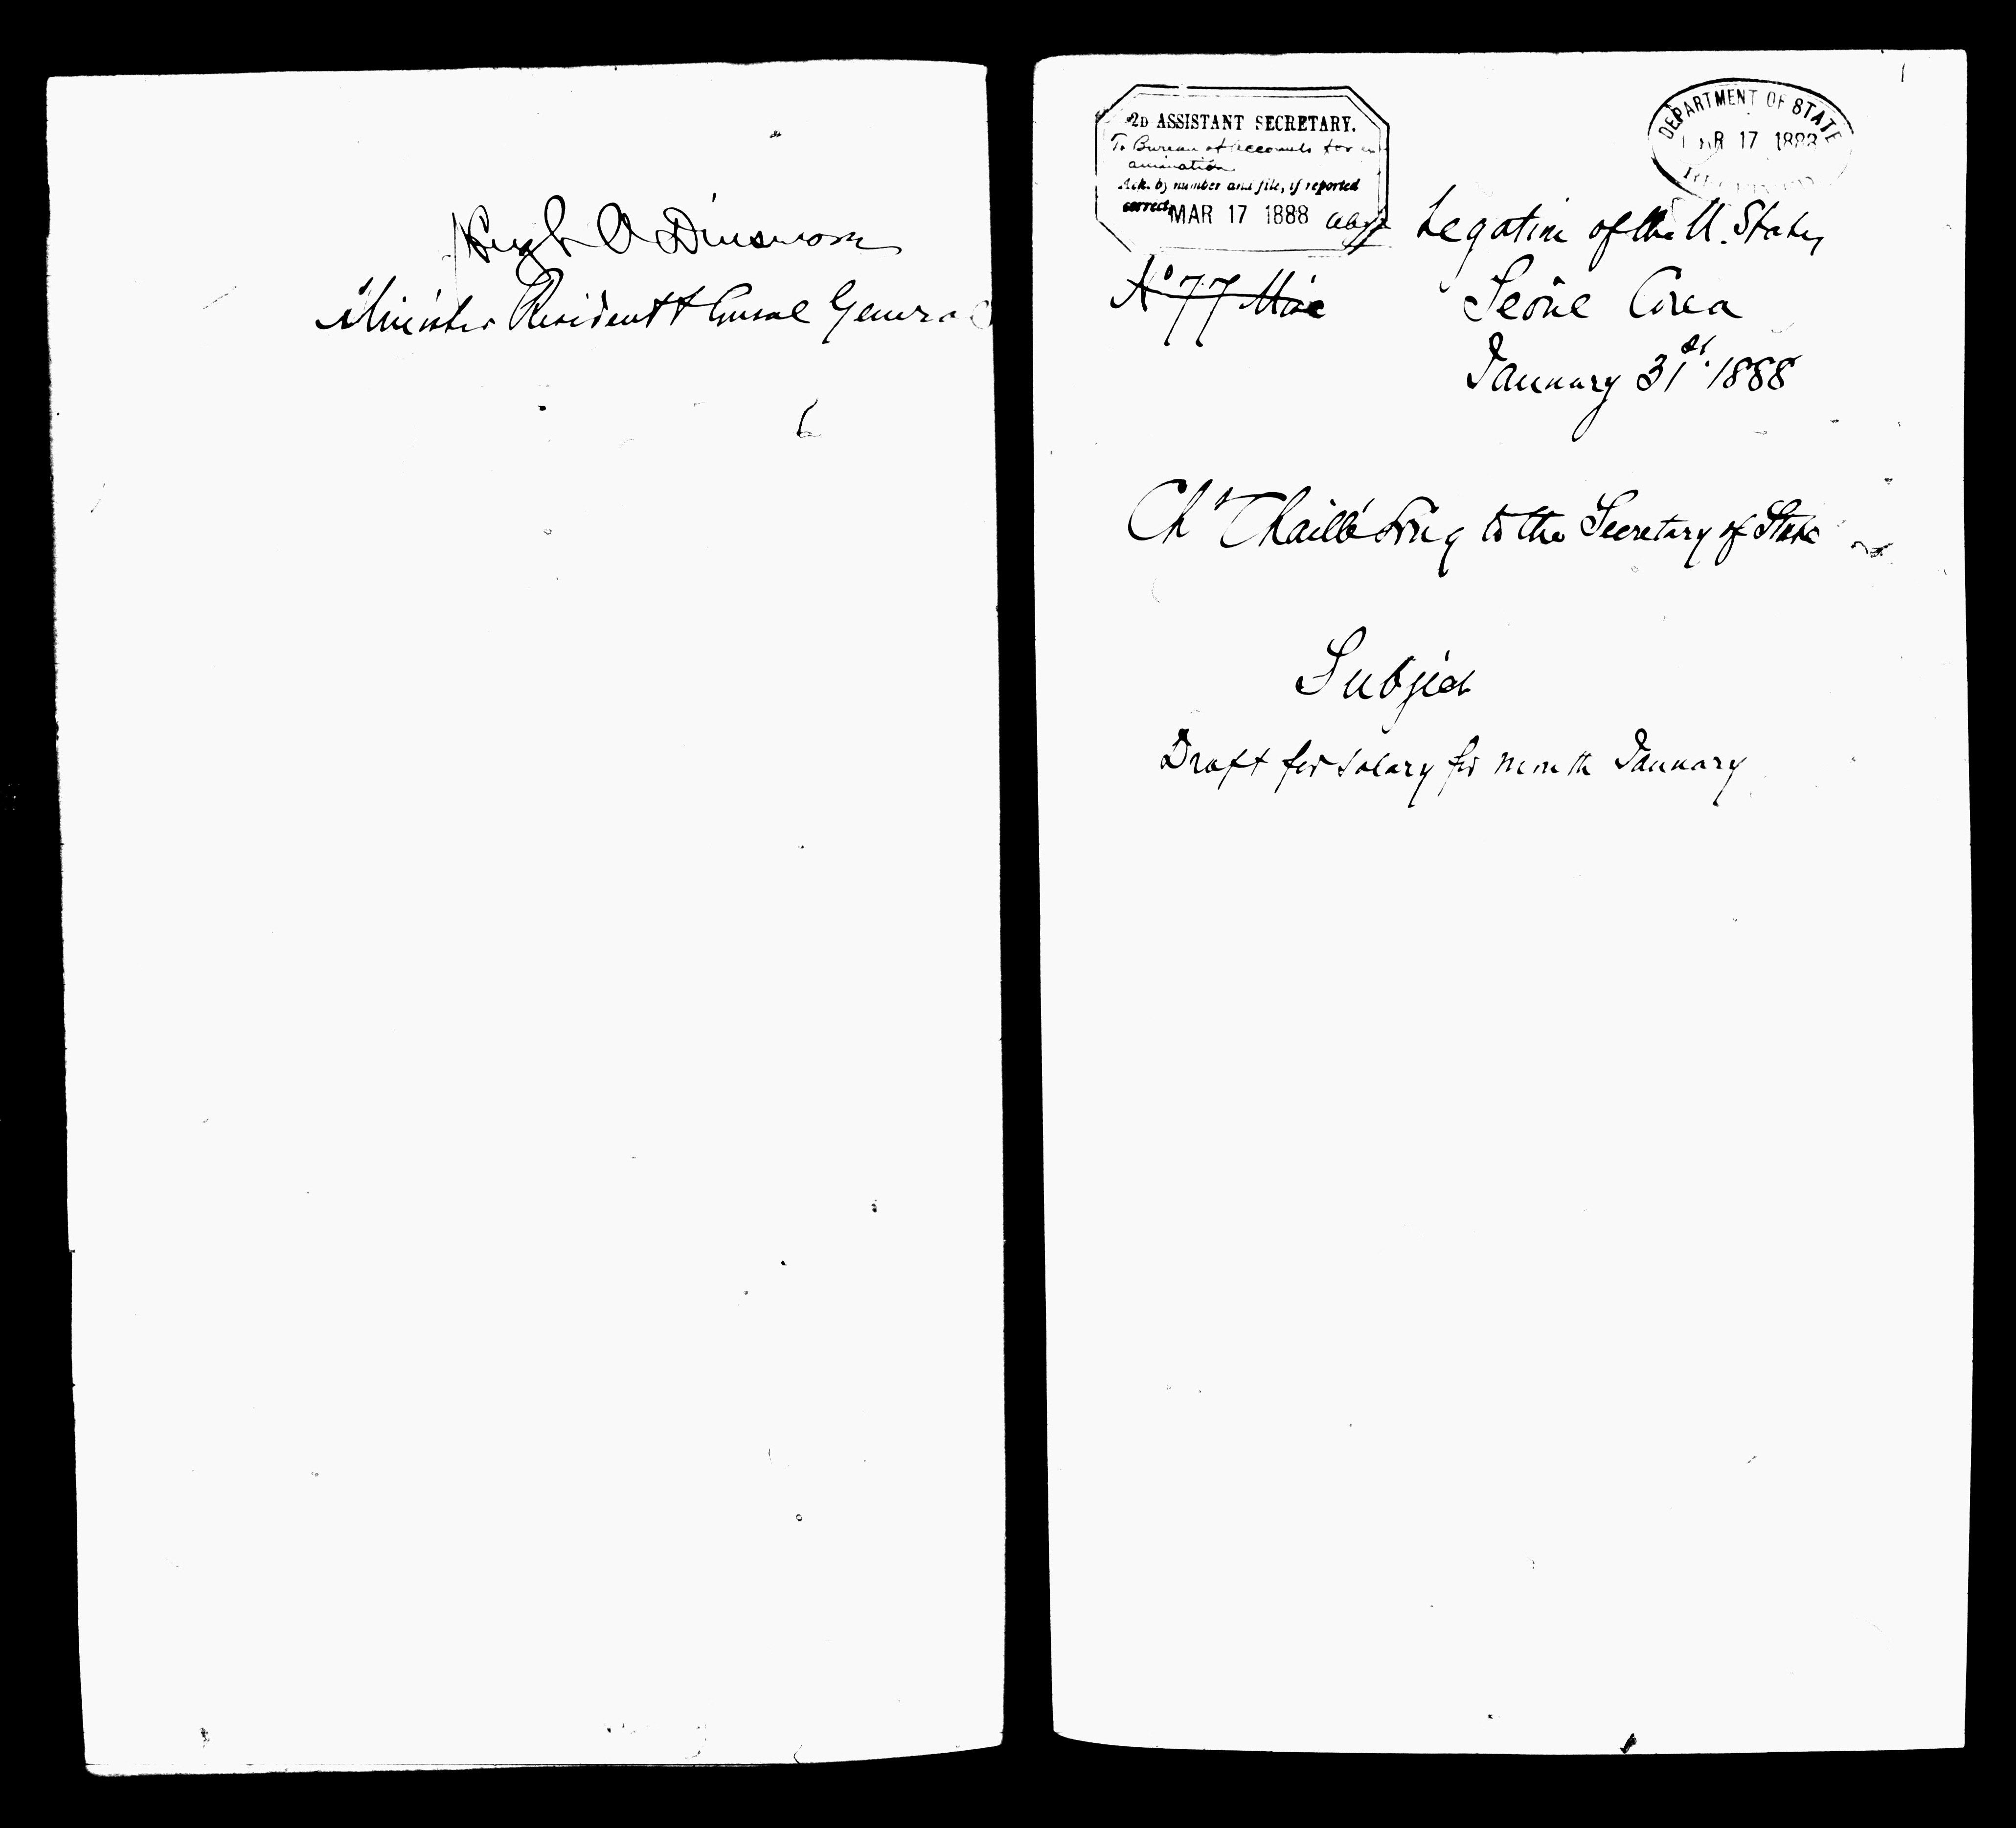 Hugh A Dinsmore
Minister Resident & Consul General
2D ASSISTANT SECRETARY.
To Bureau of Accounts for ex
amination
Ack. by number and file, if reported
correct
MAR 17 1888
DEPARTMENT OF STATE
MAR 17 1888
Legation of the U. States
Seoul Corea
January 31st. 1888
No 77 Misc
Ch Chaillé Long to the Secretary of State
Subject
Draft for salary for month January